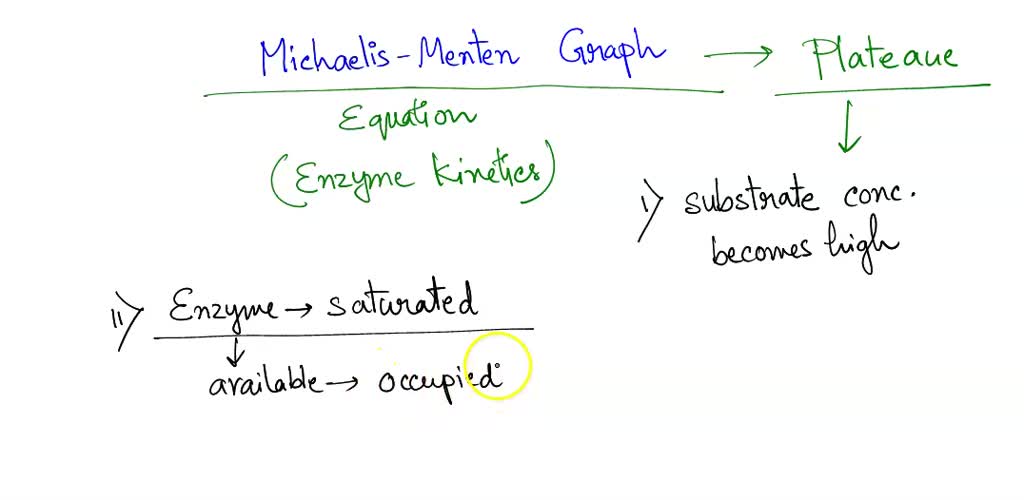 Michaelis-Menten Graph → Plateaue
Equation
(Enzyme kinetics)
↓
i) substrate conc.
becomes high
ii) Enzyme → saturated
↓
available → occupied